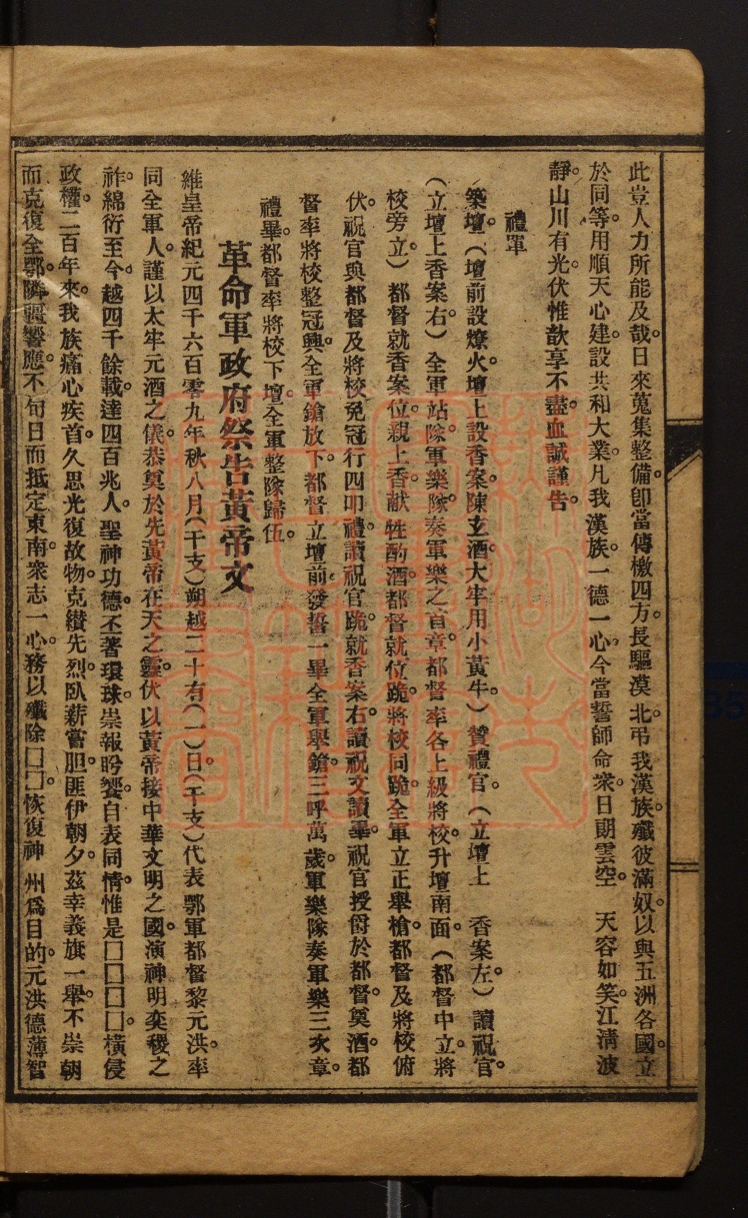 此豈人力所能及哉。日來蒐集整備。卽當傳檄四方。長驅漠北。弔我漢族。殲彼滿奴。以與五洲各國。立
於同等。用順天心。建設共和大業。凡我漢族。一德一心。今當誓師命衆。日朗雲空。天容如笑。江淸波
靜。山川有光。伏惟歆享。不盡血誠。謹告。
禮單
築壇。(壇前設燎火。壇上設香案。陳玄酒。大牢用小黃牛。)贊禮官。(立壇上香案左。)讀祝官。
(立壇上香案右。)全軍站隊。軍樂隊奏軍樂之首章。都督率各上級將校。升壇南面。(都督中立。將
校旁立。)都督就香案位。親上香。献牲酌酒。都督就位跪。將校同跪。全軍立正舉槍。都督及將校俯
伏。祝官與都督及將校免冠行四叩禮。讀祝官跪。就香案右。讀祝文。讀畢。祝官授爵於都督。奠酒。都
督率將校整冠興。全軍鎗放下。都督立壇前。發誓一畢。全軍舉鎗。三呼萬歲。軍樂隊奏軍樂三次章。
禮畢。都督率將校下壇。全軍整隊歸伍。
革命軍政府祭告黃帝文
維皇帝紀元四千六百零九年秋八月(干支)朔越二十有(一)日。(干支)代表鄂軍都督黎元洪。率
同全軍人。謹以太牢元酒之儀。恭奠於先黃帝在天之靈。伏以黃帝接中華文明之國。演神明奕稷之
祚。綿衍至今。越四千餘載。達四百兆人。聖神功德。丕著環球。崇報肸蠁。自表同情。惟是□□□□。橫侵
政權。二百年來。我族痛心疾首。久思光復故物。克纘先烈。臥薪嘗胆。匪伊朝夕。茲幸義旗一舉。不崇朝
而克復全鄂。隣疆響應。不旬日而抵定東南。衆志一心。務以殲除□□。恢復神州爲目的。元洪德薄智